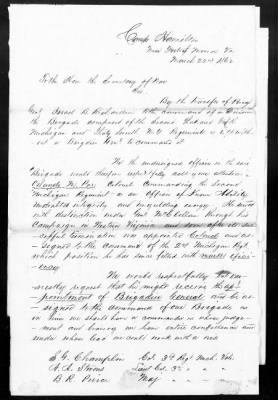 Camp Hamilton
Near Fortress Monroe Va
March 22nd 1862
To the Hon the Secretary of War
Sir
By the transfer of Brig
Genl Israel B. Richardson to the command of a Division
the Brigade composed of the Second Third and Fifth
Michigan and Thirty Seventh N.Y. Regiments is left with-
out a Brigadier Genl to command it
We the undersigned officers in the said
Brigade would therefore respectfully call your attention
to Orlando M. Poe Colonel Commanding the Second
Michigan Regiment as an officer of great Ability
undoubted integrity and unyielding energy. He served
with distinction under Genl McClellan through his
Campaign in Western Virginia and soon after its suc-
cessful termination was appointed Colonel and as-
signed to the command of the 2nd Michigan Regt.
which position he has since filled with marked effici-
ency
We would respectfully and ear-
nestly request that he might receive the ap-
pointment of Brigadier General and be as-
signed to the command of our Brigade as
in him we should have a commander in whose judge-
ment and bravery we have entire confidence and
under whom we could work with a will
S. G. Champlin Col. 3d Regt Mich. Vols.
A. A. Stevens Lieut Col. 3d " "
B. R. Pierce Maj " " "